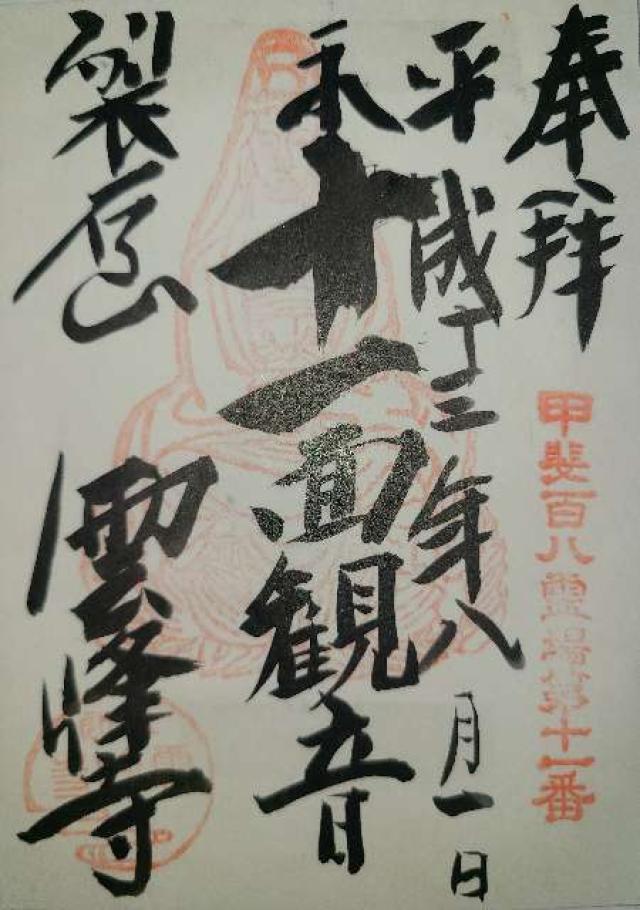 奉拝
甲斐百八霊場第十一番
平成十三年八月一日
十一面観音
裂石山
雲峰寺